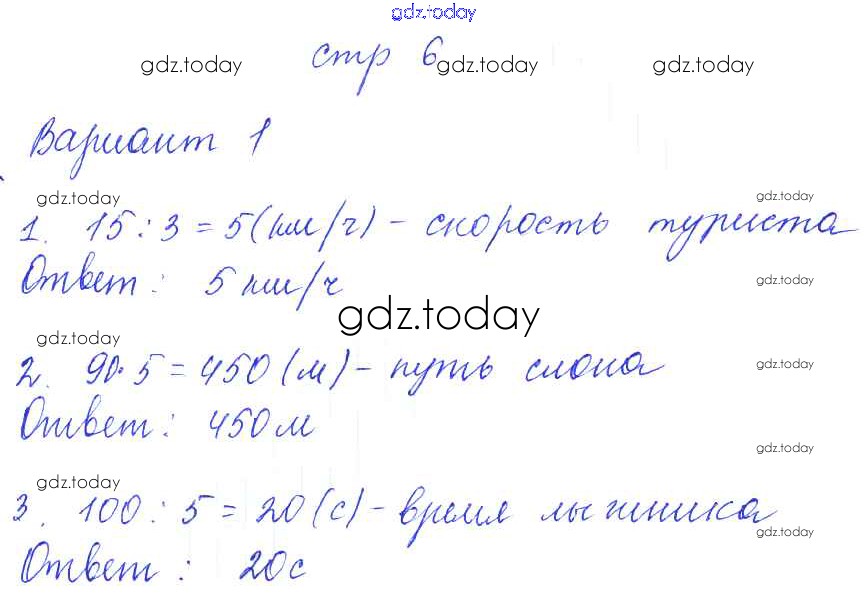 gdz.today
стр 6
gdz.today gdz.today gdz.today
Вариант 1
gdz.today gdz.today
1. 15 : 3 = 5 (км/ч) - скорость туриста
Ответ : 5 км/ч
gdz.today
gdz.today
gdz.today
2. 90·5 = 450 (м) - путь слона
gdz.today
Ответ : 450 м
gdz.today
gdz.today
3. 100 : 5 = 20 (с) - время лыжника
gdz.today
Ответ : 20с